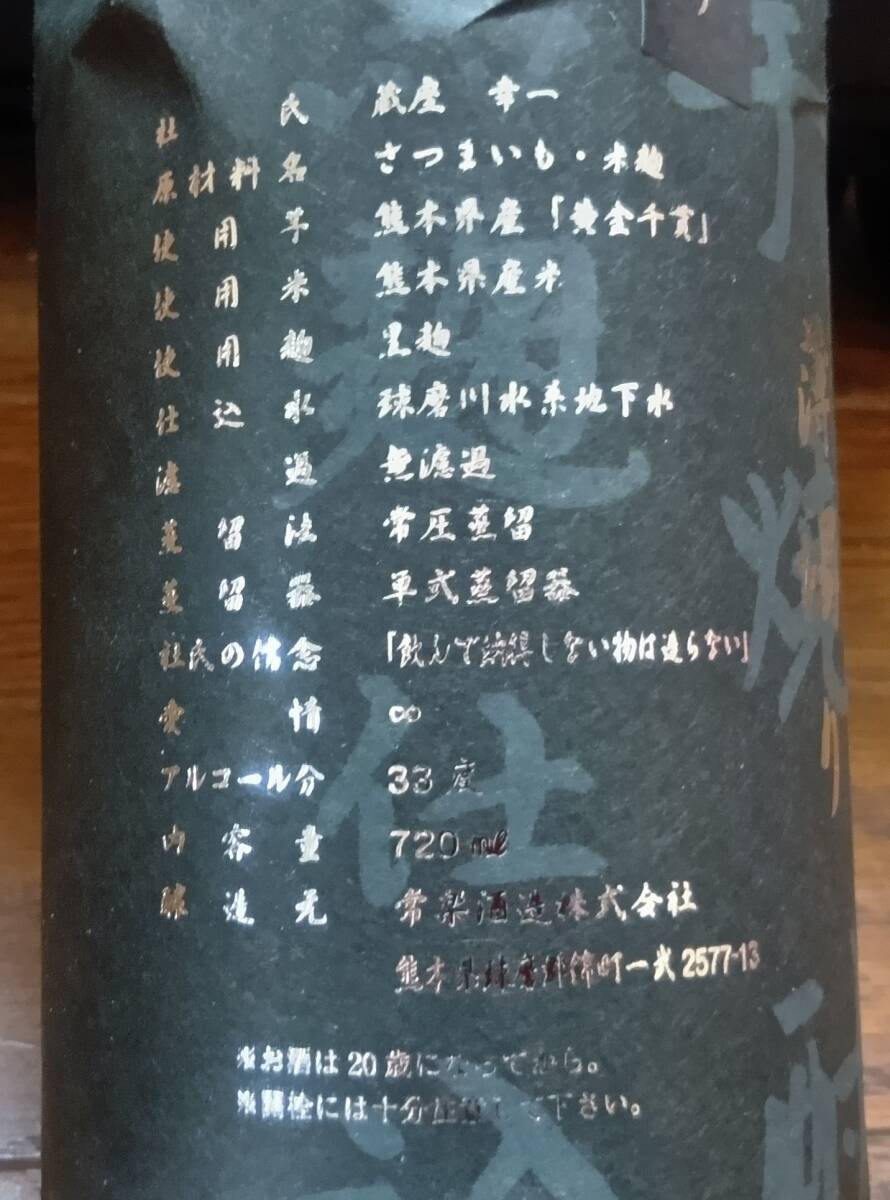 杜氏 蔵座 幸一
原材料名 さつまいも・米麹
使用芋 熊本県産「黄金千貫」
使用米 熊本県産米
使用麹 黒麹
仕込水 球磨川水系地下水
濾過 無濾過
蒸留法 常圧蒸留
蒸留器 単式蒸留器
杜氏の信念 「飲んで納得しない物は造らない」
愛情 ∞
アルコール分 33度
内容量 720ml
醸造元 常楽酒造株式会社
熊本県球磨郡錦町一武2577-13
※お酒は20歳になってから。
※開栓には十分注意して下さい。
麹仕込
焼酎